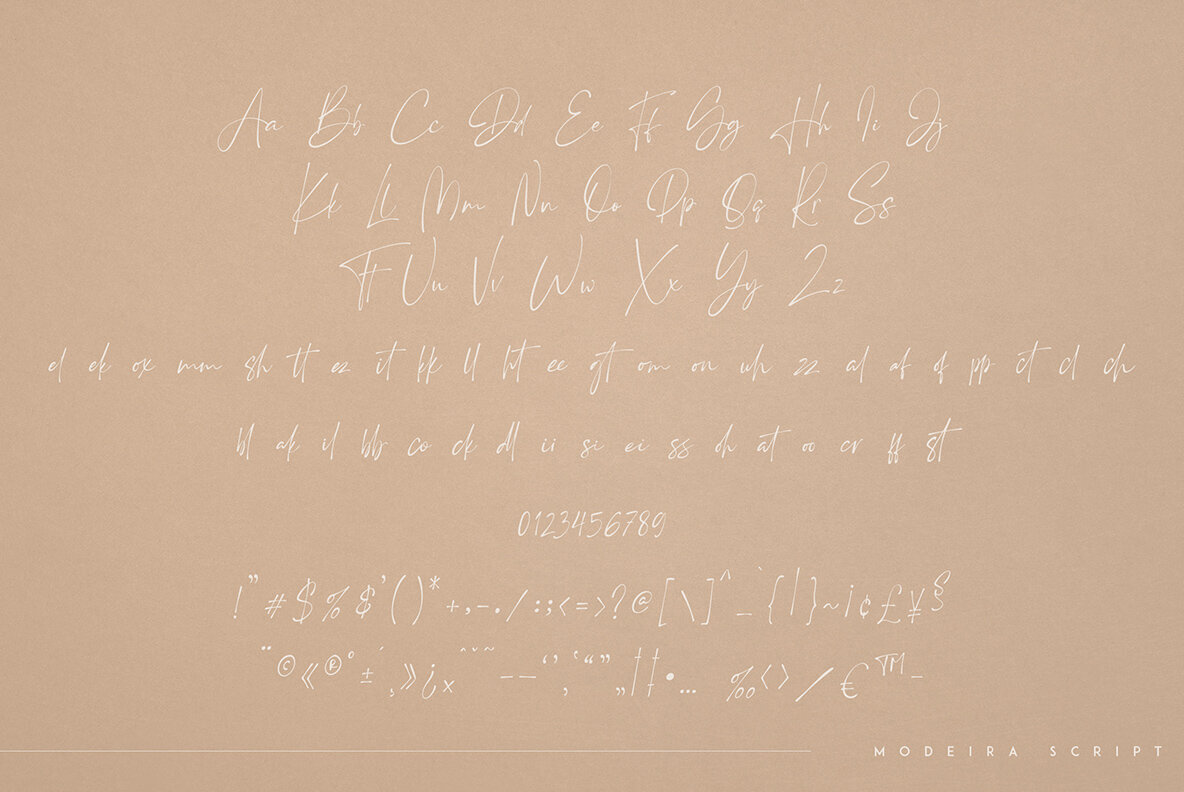 Aa Bb Cc Dd Ee Ff Gg Hh Ii Jj
Kk Ll Mm Nn Oo Pp Qq Rr Ss
Tt Uu Vv Ww Xx Yy Zz
el ek ox mm sh tt ez it kk ll ht ee gt om on uh zz al af of pp ct cl ch
bl ak il bb co ck dl ii si ei ss oh at oo cr ff st
0123456789
!"#$%&'()*+,-./:;<=>?@[\]^_`{|}~¡¢£¥§
¨©«®°±´¸»¿×ˆˇ˜–—‘’‚‛“”„†‡•…‰‹›⁄€™−
MODEIRA SCRIPT